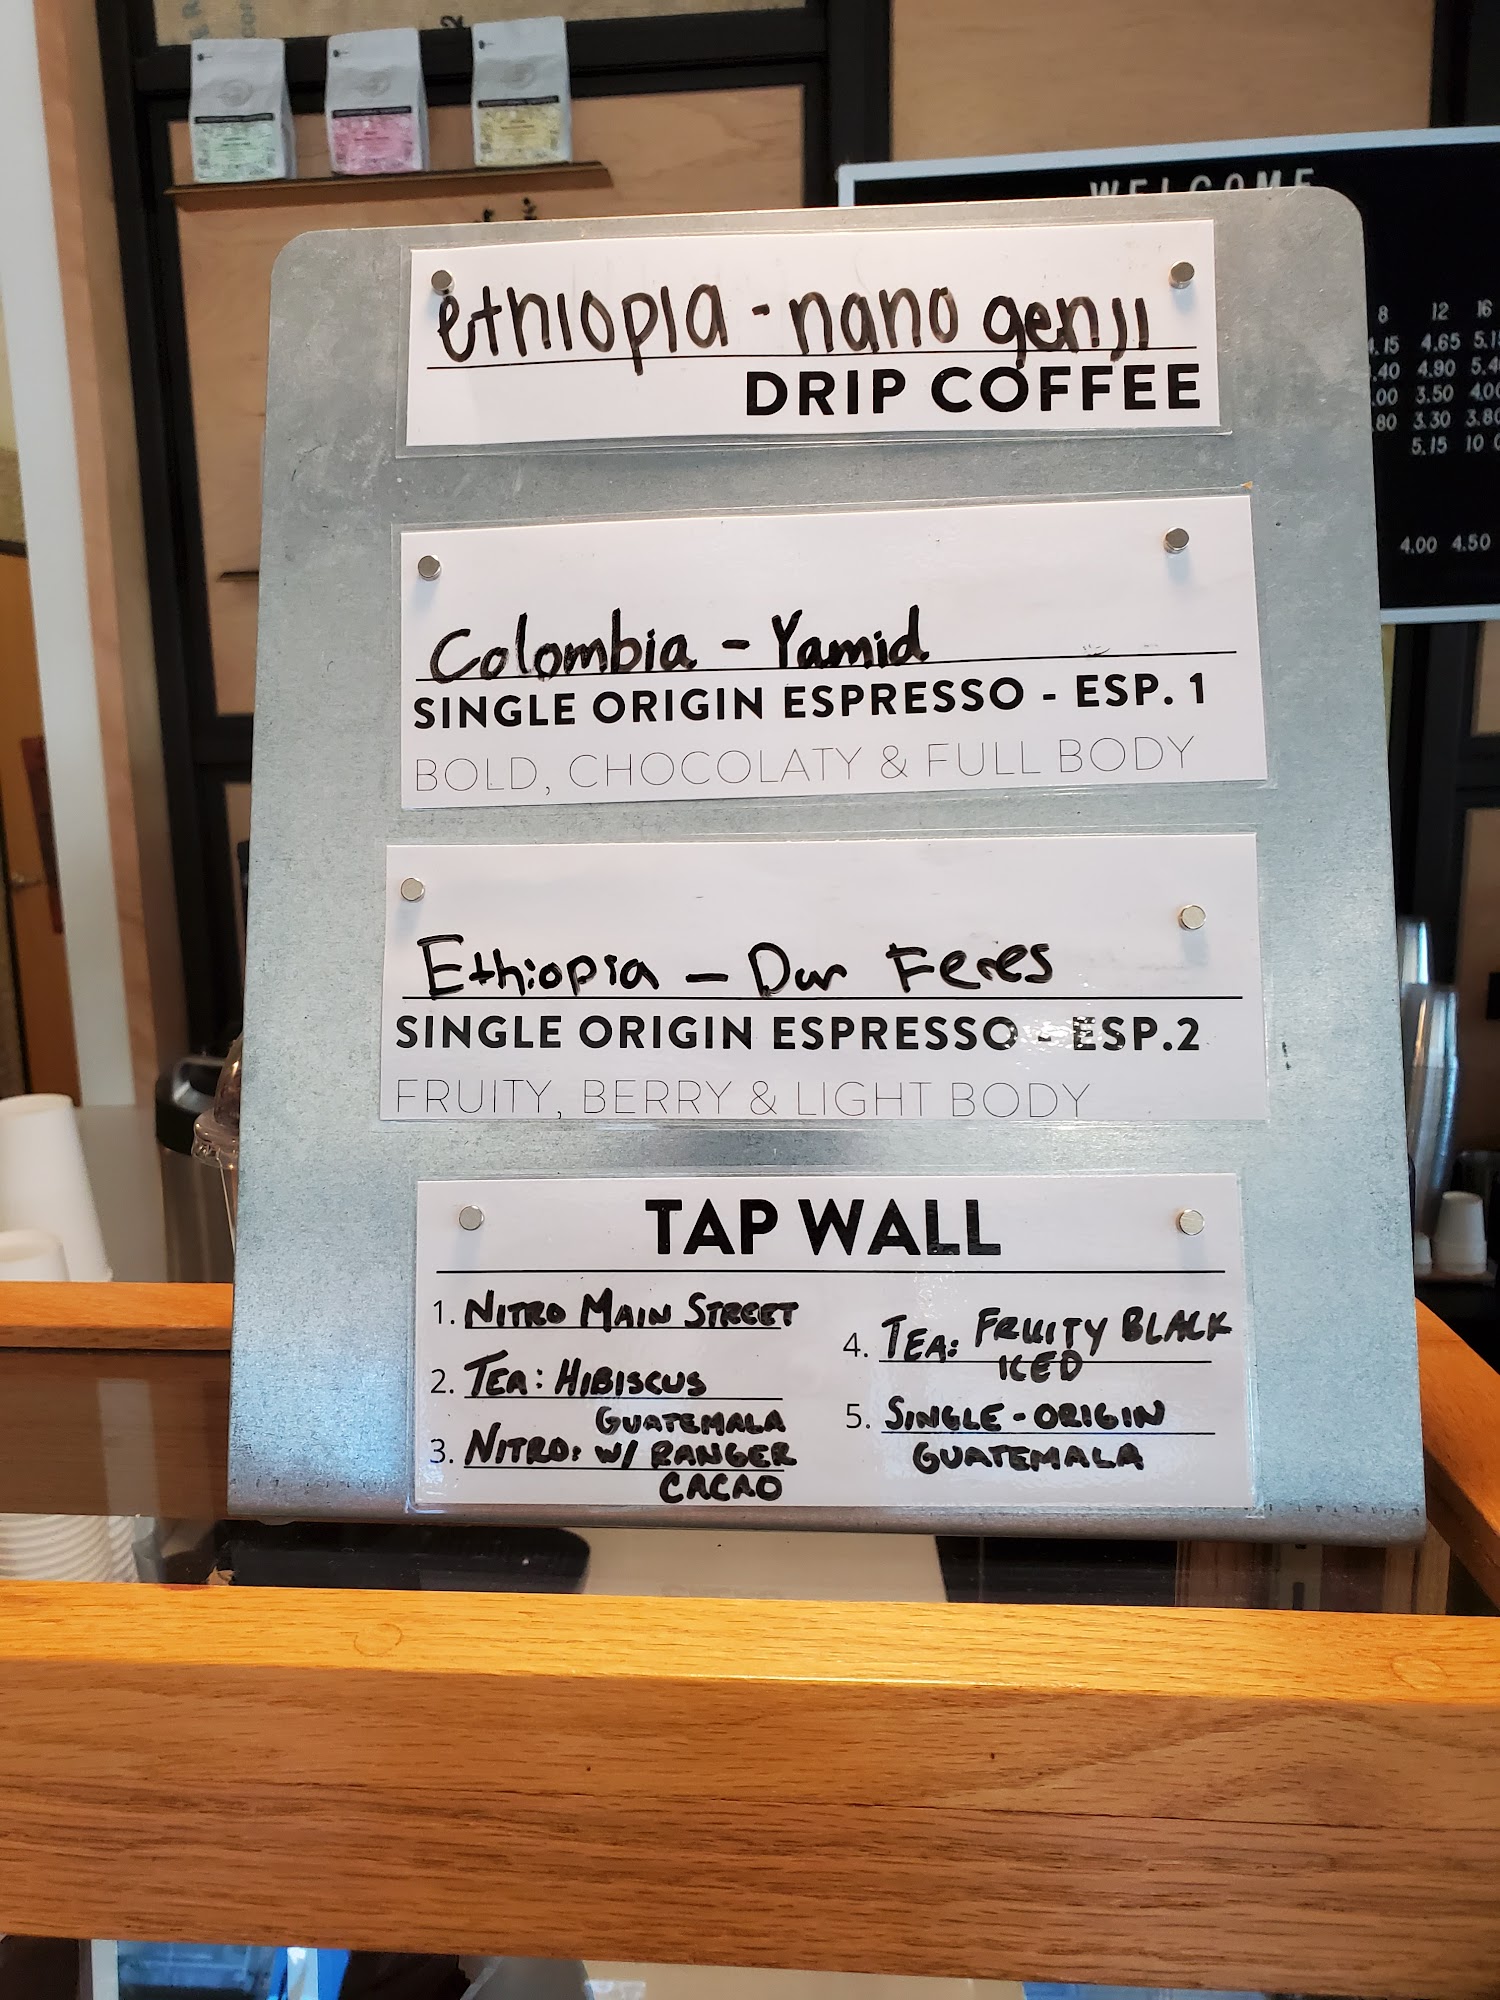 WELCOME
8 12 16
.15 4.65 5.1
.40 4.90 5.4
.00 3.50 4.00
.80 3.30 3.80
5.15 10 0
4.00 4.50
ethiopia - nano genji
DRIP COFFEE
Colombia - Yamid
SINGLE ORIGIN ESPRESSO - ESP. 1
BOLD, CHOCOLATY & FULL BODY
Ethiopia - Dur Feres
SINGLE ORIGIN ESPRESSO - ESP.2
FRUITY, BERRY & LIGHT BODY
TAP WALL
1. NITRO MAIN STREET
2. TEA: HIBISCUS
GUATEMALA
3. NITRO: W/ RANGER
CACAO
4. TEA: FRUITY BLACK
ICED
5. SINGLE-ORIGIN
GUATEMALA